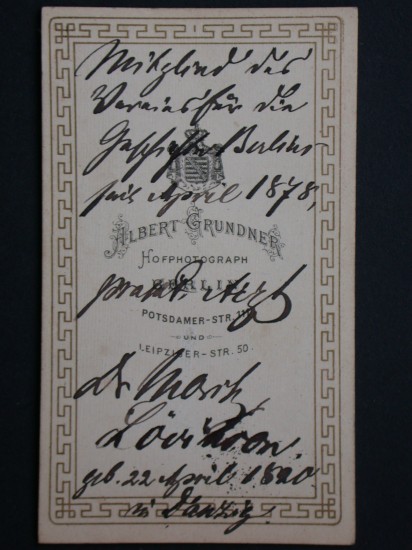 Mitglied des
Vereins für die
Geschichte Berlins
seit April 1878,
ALBERT GRUNDNER
HOFPHOTOGRAPH
BERLIN
prakt. Arzt
POTSDAMER-STR.
UND
LEIPZIGER-STR. 50.
Dr
geb. 22 April 1820
in Danzig.